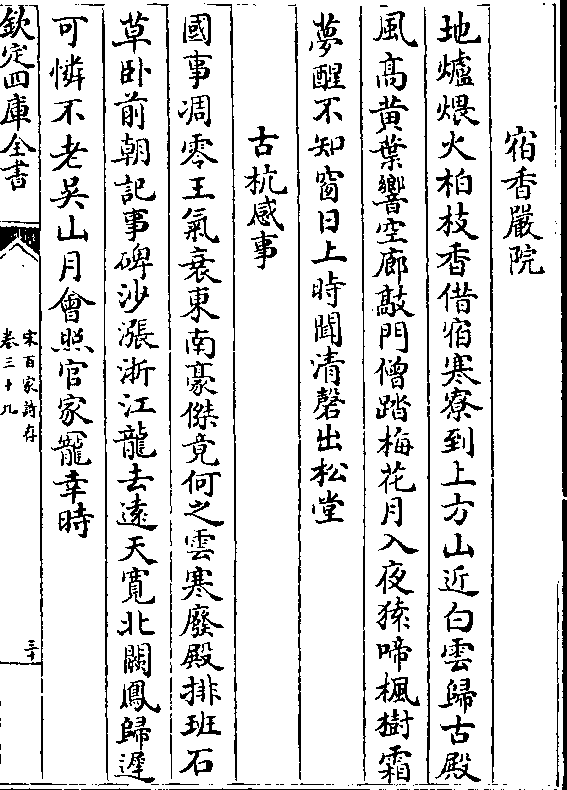 宿香嚴院
地爐煨火柏枝香借宿寒寮到上方山近白雲歸古殿
風高黃葉響空廊敲門僧踏梅花月入夜猿啼楓樹霜
夢醒不知窗日上時聞清磬出松堂
古杭感事
國事凋零王氣衰東南豪傑竟何之雲寒廢殿排班石
草卧前朝記事碑沙漲浙江龍去遠天寛北闕鳳歸遲
可憐不老吳山月曾照官家寵幸時
欽定四庫全書
宋百家詩存
卷三十九